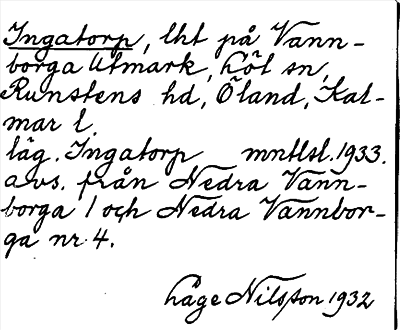 Ingatorp, lht på Vann-
borga Utmark, Köl sn,
Runstens hd, Öland, Kal-
mar l.
läg. Ingatorp mntlsl. 1933.
avs. från Nedra Vann-
borga 1 och Nedra Vannbor-
ga nr 4.
Håge Nilsson 1932